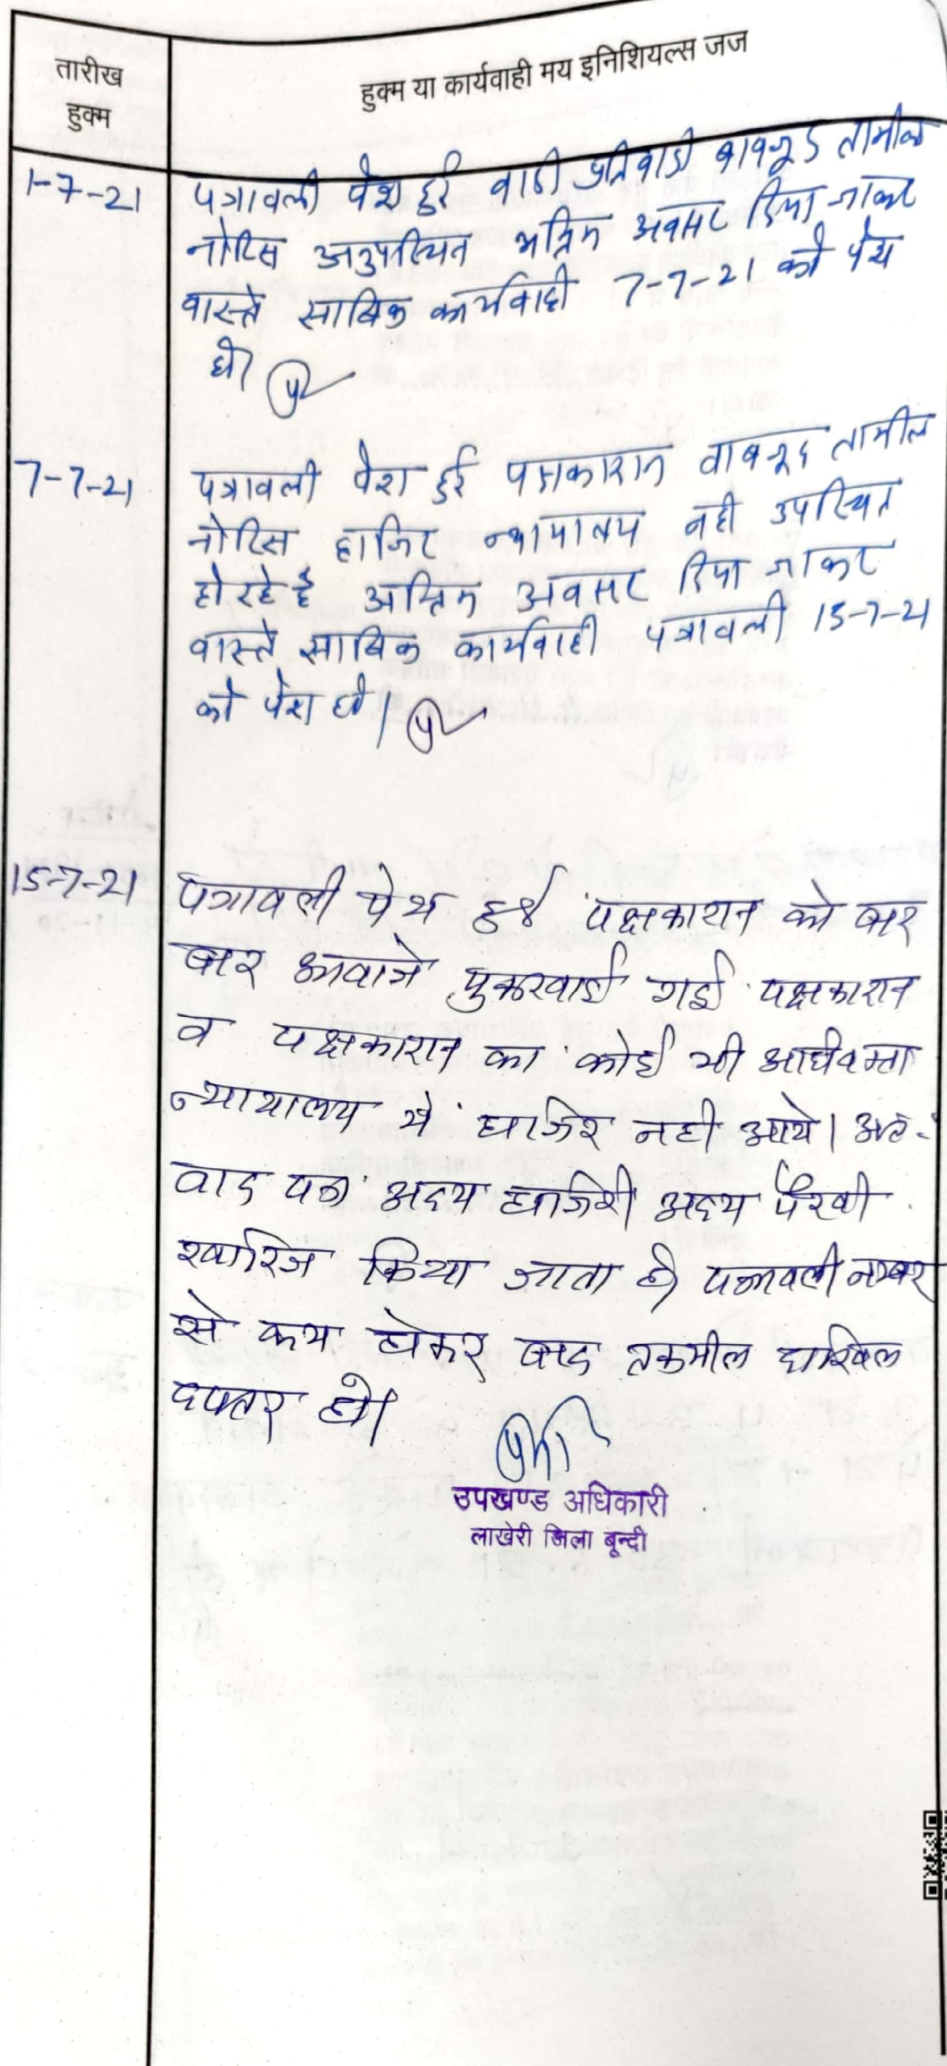 तारीख
हुक्म
हुक्म या कार्यवाही मय इनिशियल्स जज
1-7-21
पत्रावली पेश हुई वादी प्रतिवादी बावजूद तामील
नोटिस अनुपस्थित अन्तिम अवसर दिया जाकर
वास्ते साबिक कार्यवाही 7-7-21 को पेश
हो।
7-7-21
पत्रावली पेश हुई पक्षकारान बावजूद तामील
नोटिस हाजिर न्यायालय नही उपस्थित
हो रहे है अन्तिम अवसर दिया जाकर
वास्ते साबिक कार्यवाही पत्रावली 15-7-21
को पेश हो।
15-7-21
पत्रावली पेश हुई पक्षकारान को बार
बार आवाजे पुकरवाई गई पक्षकारान
व पक्षकारान का कोई भी अधिवक्ता
न्यायालय मे हाजिर नही आये। अतः
वाद पत्र अदम हाजिरी अदम पैरवी
खारिज किया जाता है। पत्रावली नम्बर
से कम होकर बाद तकमील दाखिल
दफ्तर हो।
उपखण्ड अधिकारी
लाखेरी जिला बून्दी